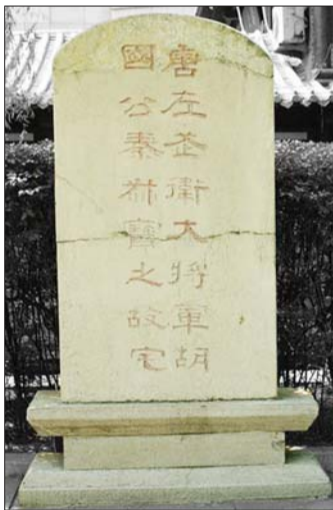 唐左武衛大將軍胡
國公秦叔寶之故宅